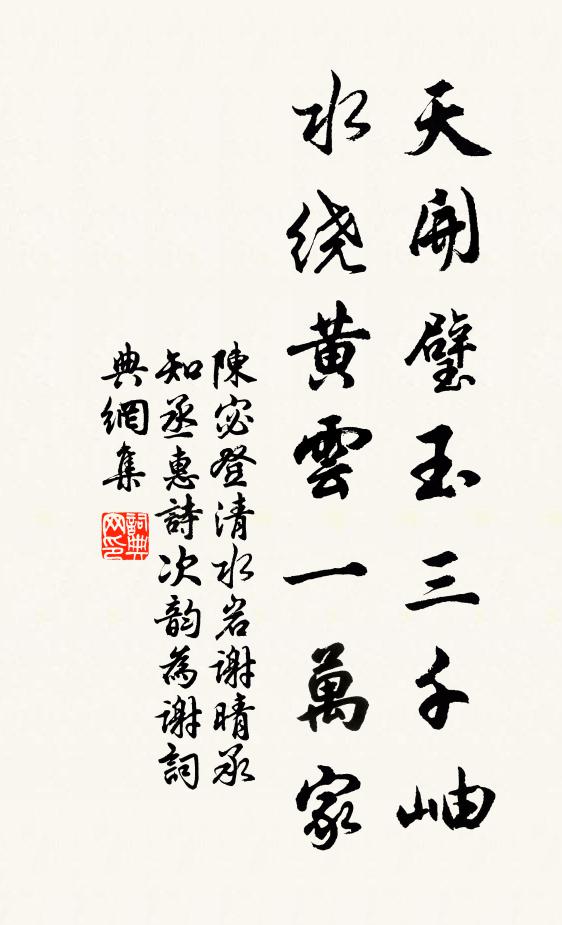 天開璧玉三千岫
水绕黄雲一萬家
陳宓登清水岩谢晴承
知丞惠詩次韵為谢詞
典網集
詞典网印